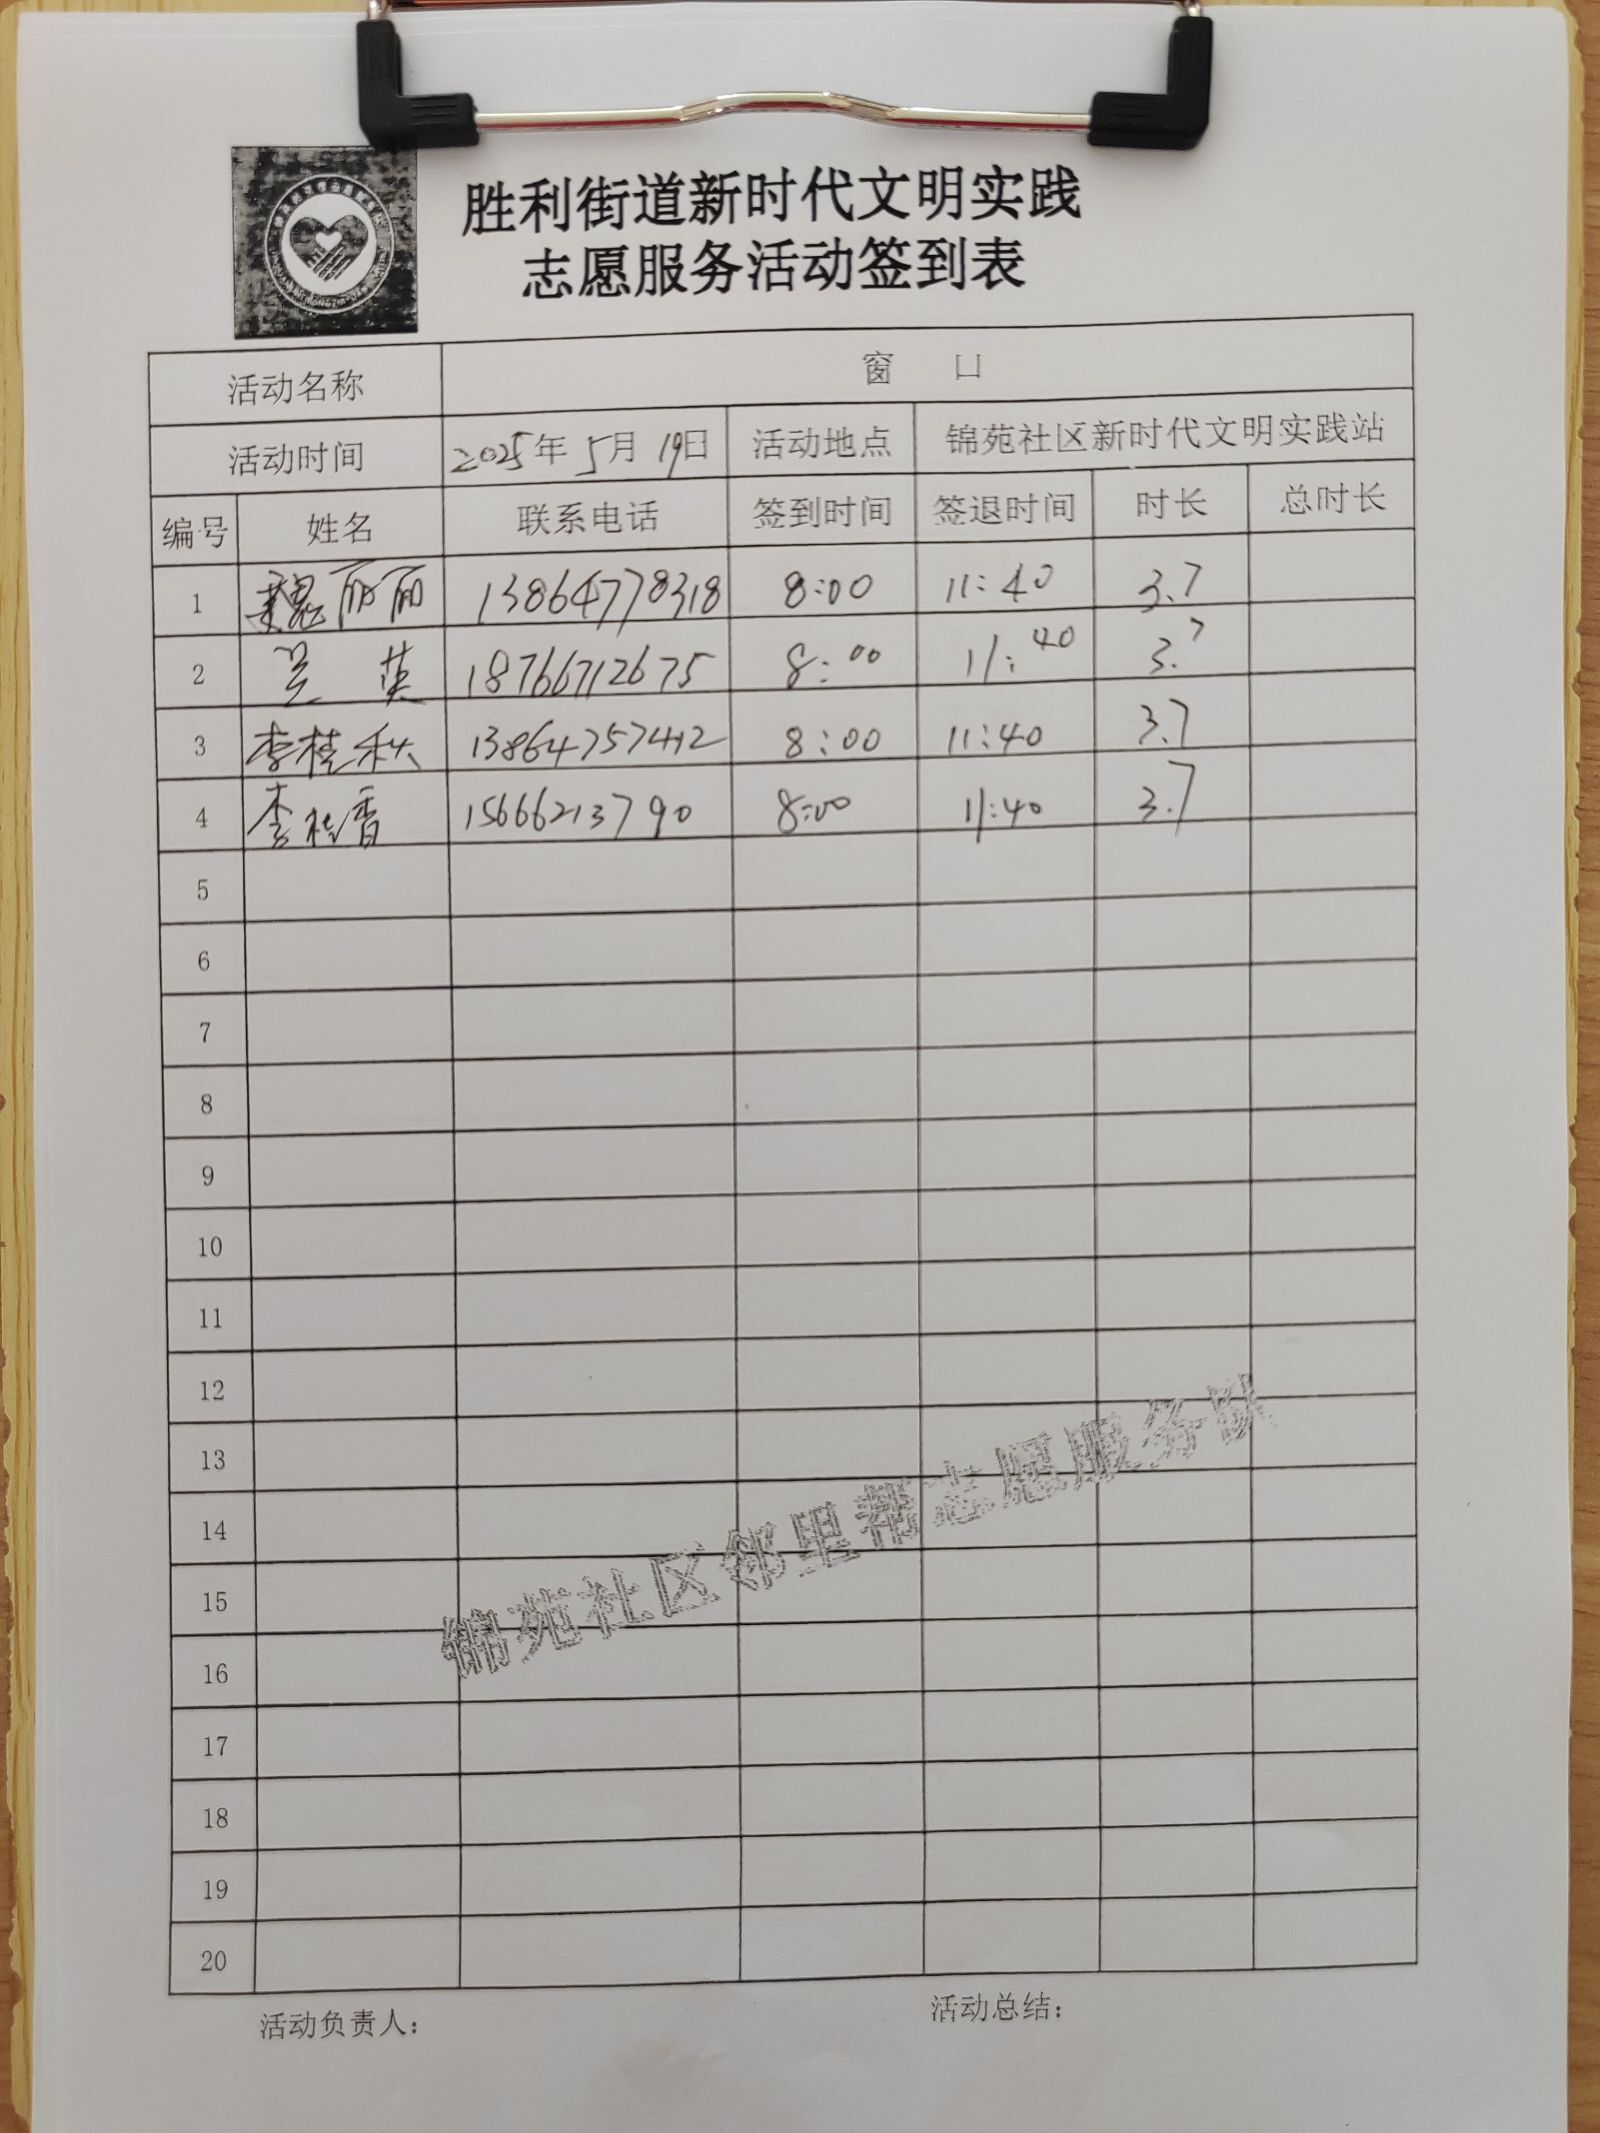 胜利街道新时代文明实践
志愿服务活动签到表
活动名称 窗 口
活动时间 2025年 5月 19日 活动地点 锦苑社区新时代文明实践站
编号 姓名 联系电话 签到时间 签退时间 时长 总时长
1 魏丽丽 13864778318 8:00 11:40 3.7
2 兰 英 18766712675 8:00 11:40 3.7
3 李桂秋 13864757412 8:00 11:40 3.7
4 李桂香 15666213790 8:00 11:40 3.7
5
6
7
8
9
10
11
12
13
14
15
16
17
18
19
20
锦苑社区邻里帮志愿服务队
活动负责人： 活动总结：